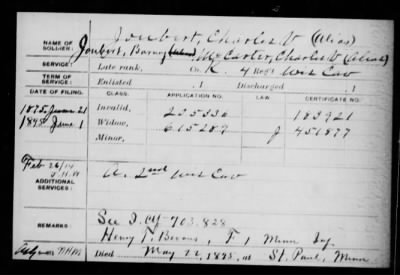 Joubert, Charles V (Alias)
NAME OF SOLDIER: Joubert, Barney (Alias) McCarter, Charles V (Alias)
SERVICE: Late rank, Co. K. 4 Reg't Wis Cav
TERM OF SERVICE: Enlisted , 1 Discharged , 1
DATE OF FILING. CLASS. APPLICATION NO. LAW. CERTIFICATE NO.
June 21 Invalid, 183921
June 1 Widow, 615289 J 451877
Minor,
Feb
ADDITIONAL SERVICES: A. 2nd Wis Cav
REMARKS: See I. Ctf 703.828
Henry F, 1 Minn Inf.
Died May 22, 1895, at St. Paul, Minn